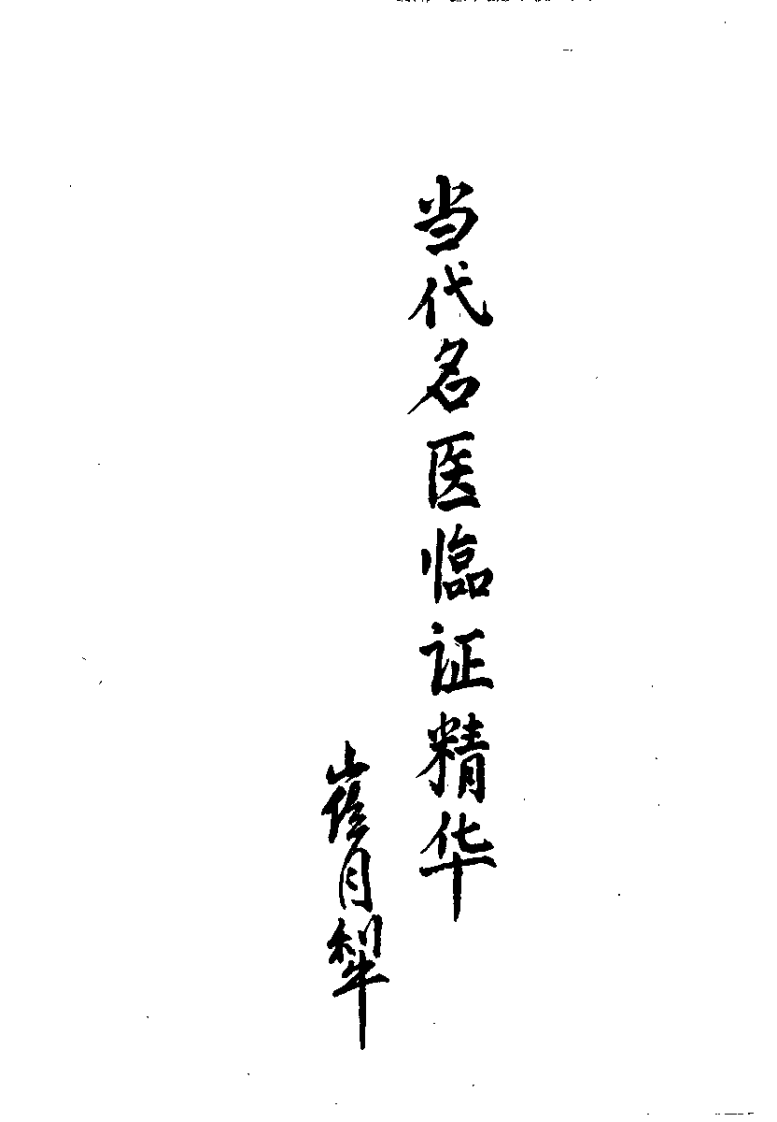 当代名医临证精华
崔月犁